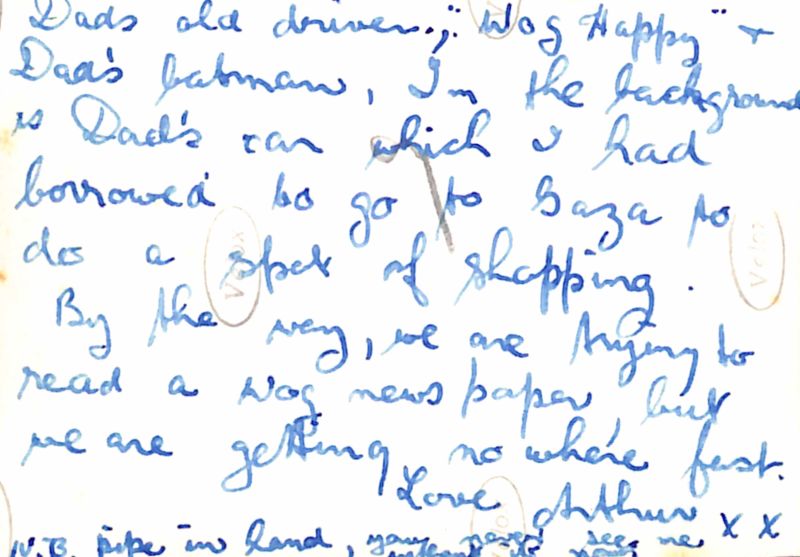 Dads old driver, "Wog Happy" +
Dad's batman, In the background
is Dad's car which I had
borrowed to go to Gaza to
do a spot of shopping.
By the way, we are trying to
read a Wog news paper, but
we are getting no where fast.
Love Arthur x x
N.B. pipe in hand, your never see me
without it now
Velox
Velox